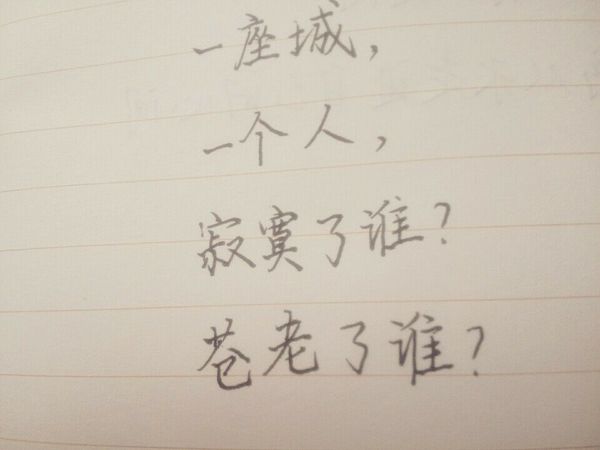 一座城，
一个人，
寂寞了谁？
苍老了谁？